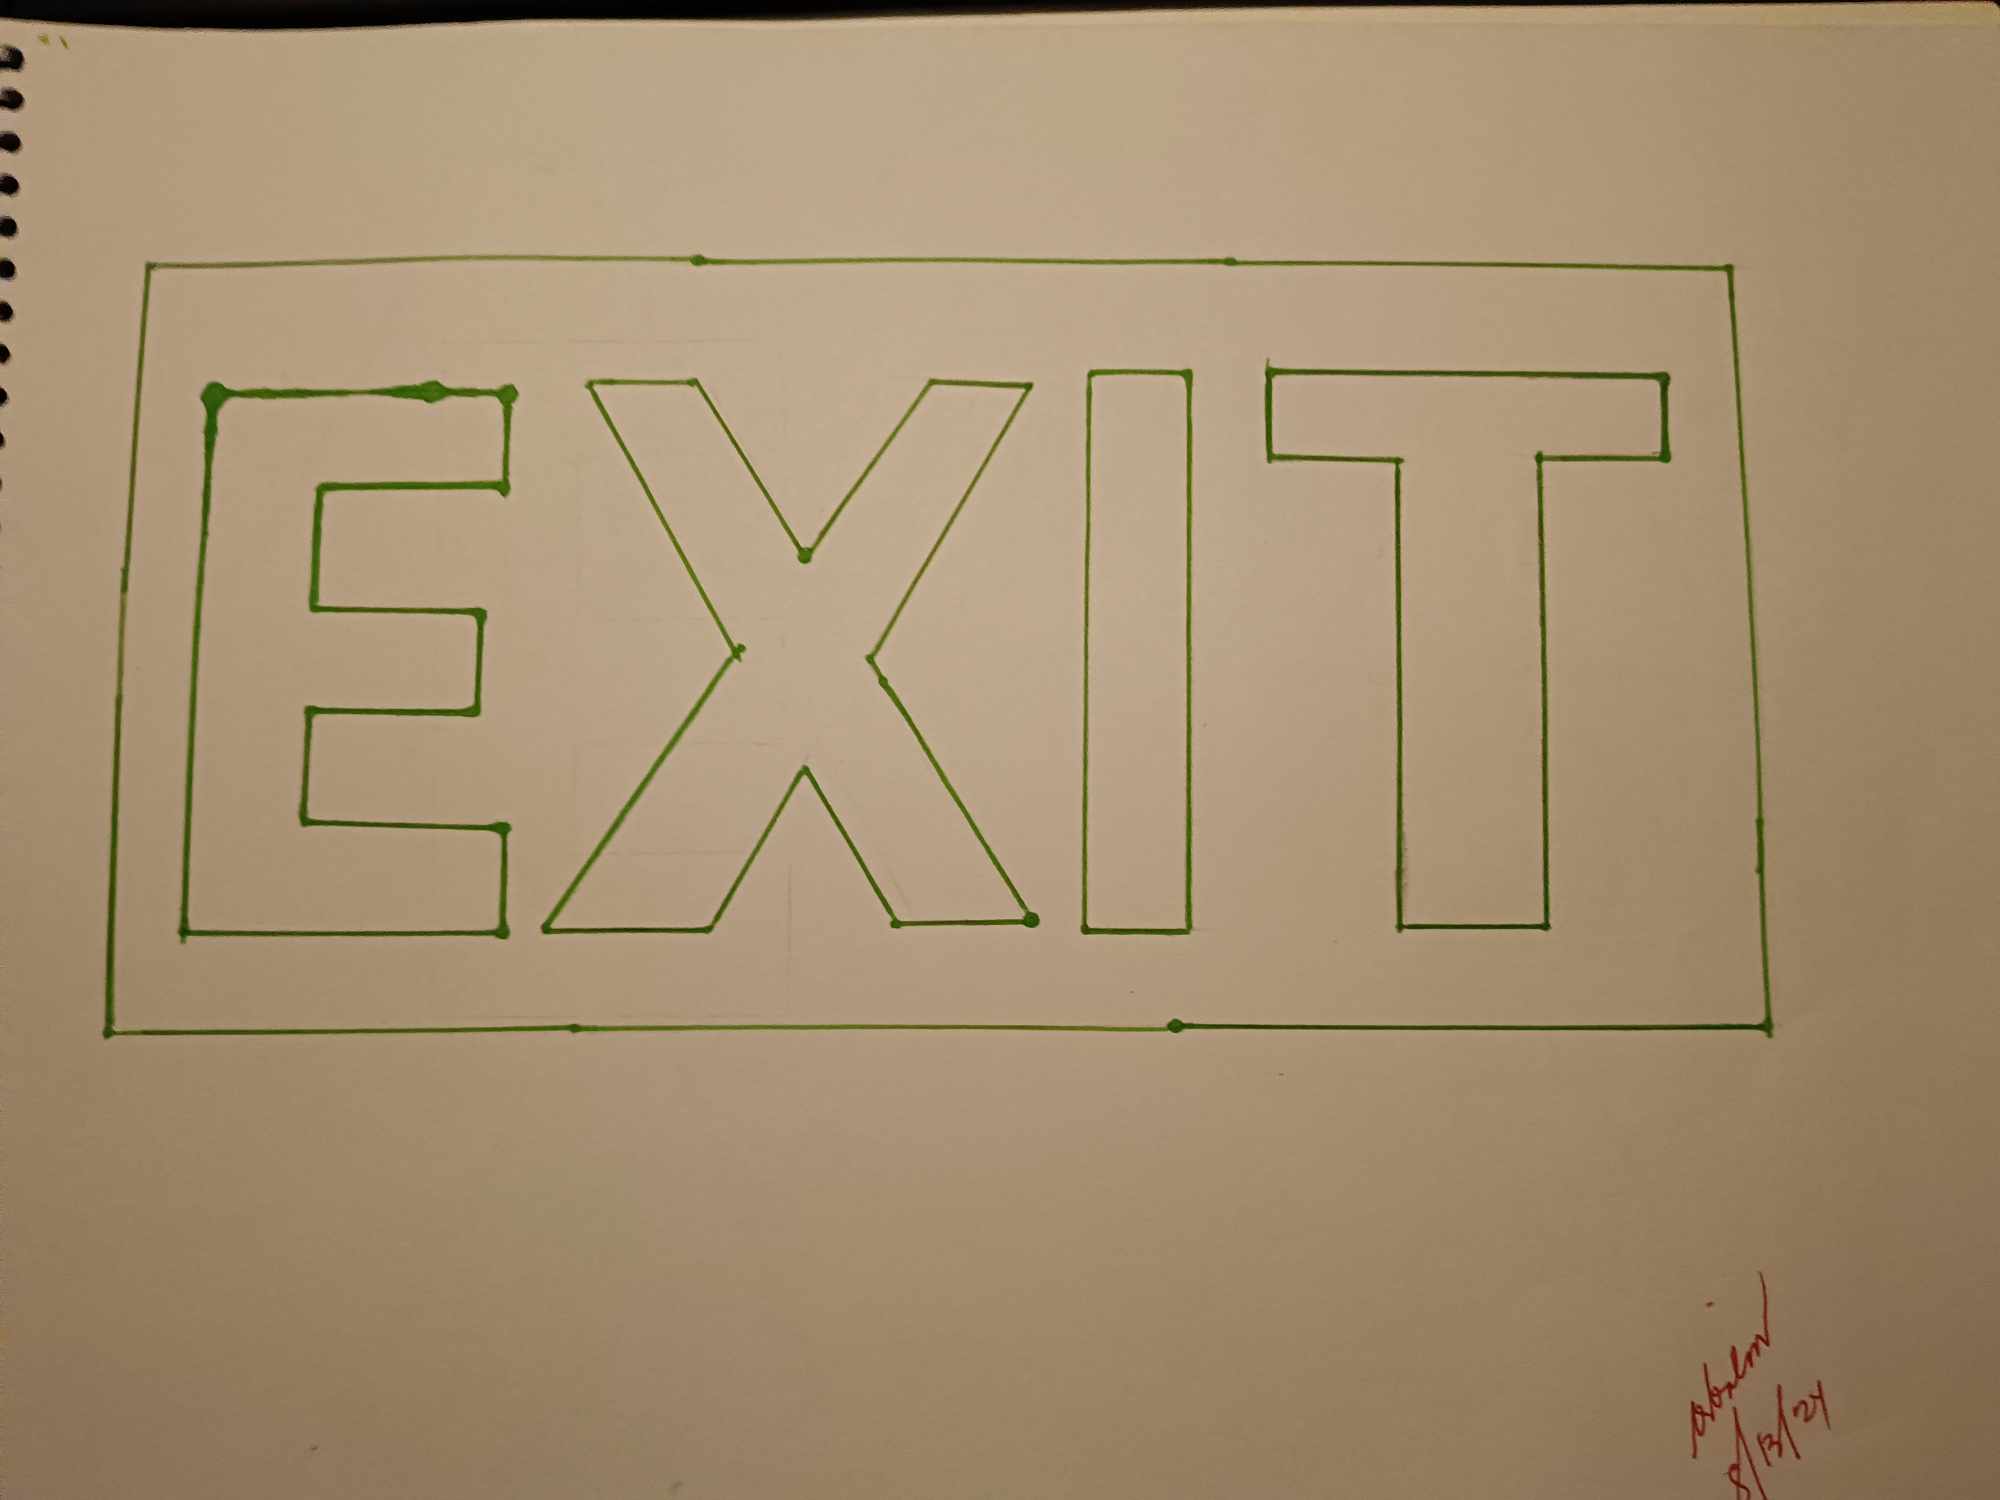 EXIT
8/13/24